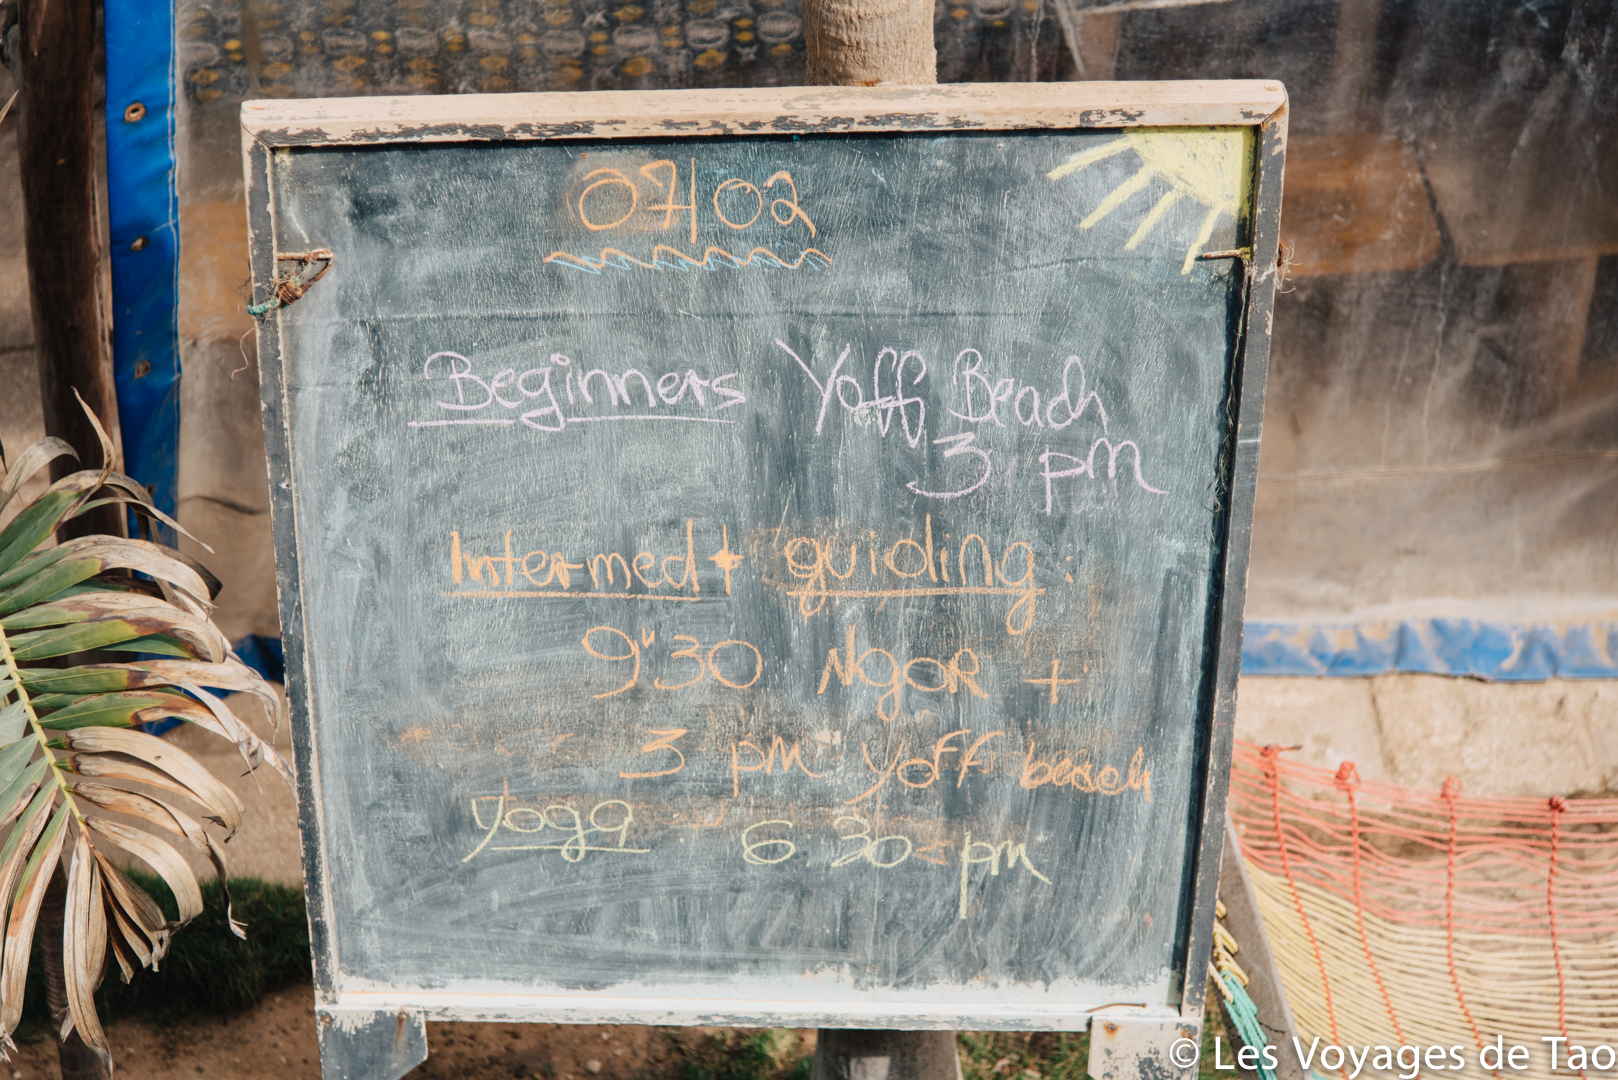 07/02
Beginners Yoff Beach
3 pm
Intermed + guiding :
9H30 NGOR +
3 pm yoff beach
yoga : 6.30 pm
© Les Voyages de Tao